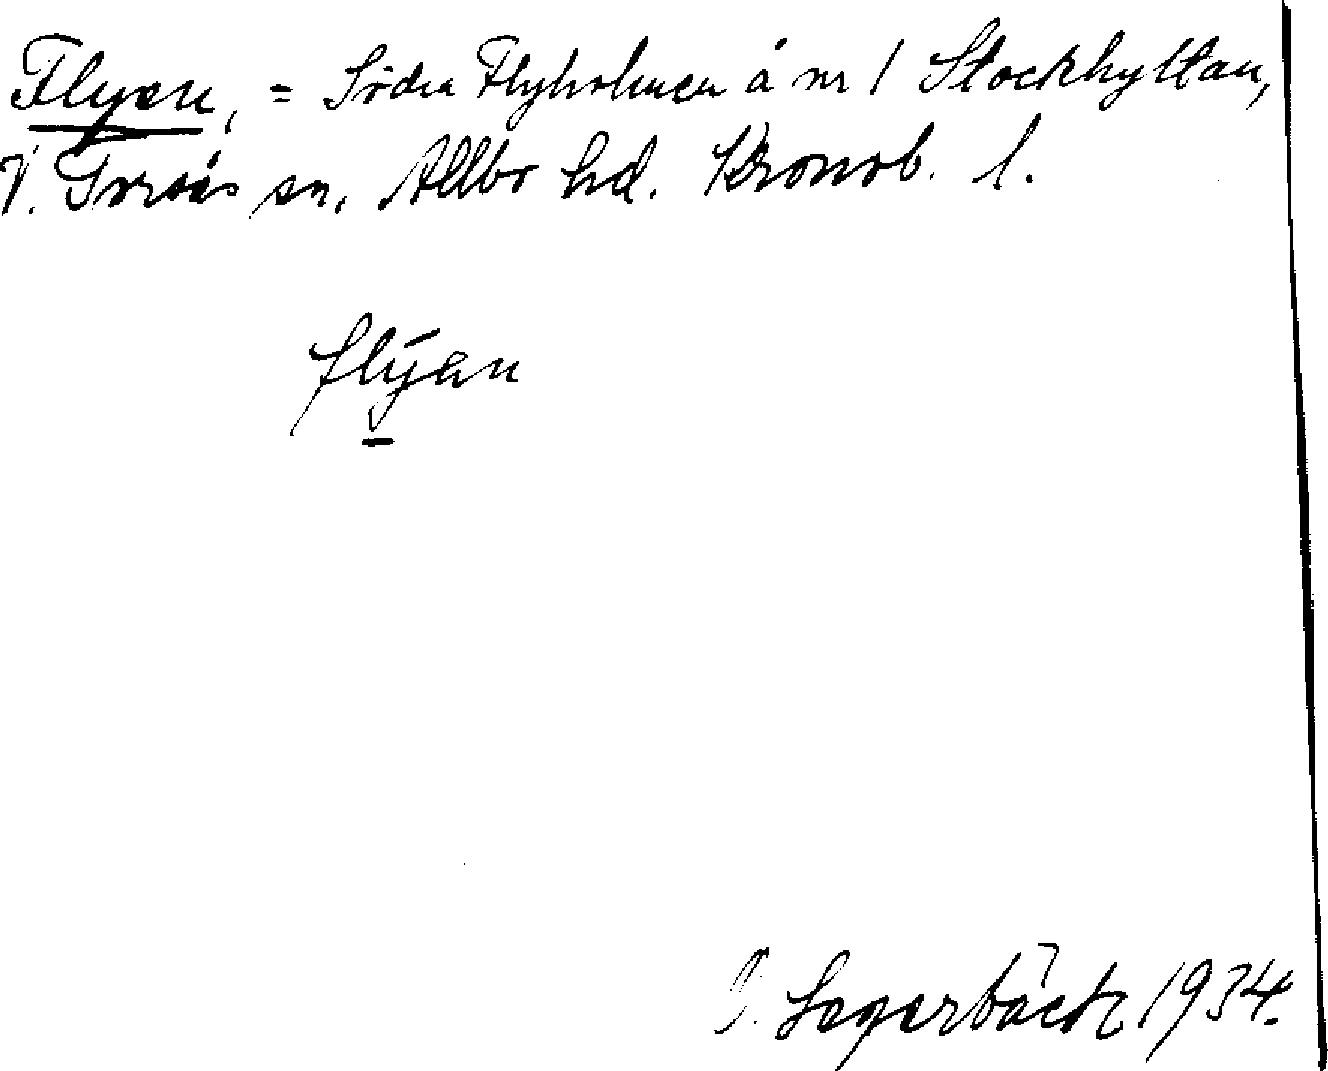 Flyen, = Södra Flyholmen å nr 1 Stockhyltan,
V. Torsås sn, Allbo hd. Kronob. l.
flýan
J. Sagerbäck 1934.